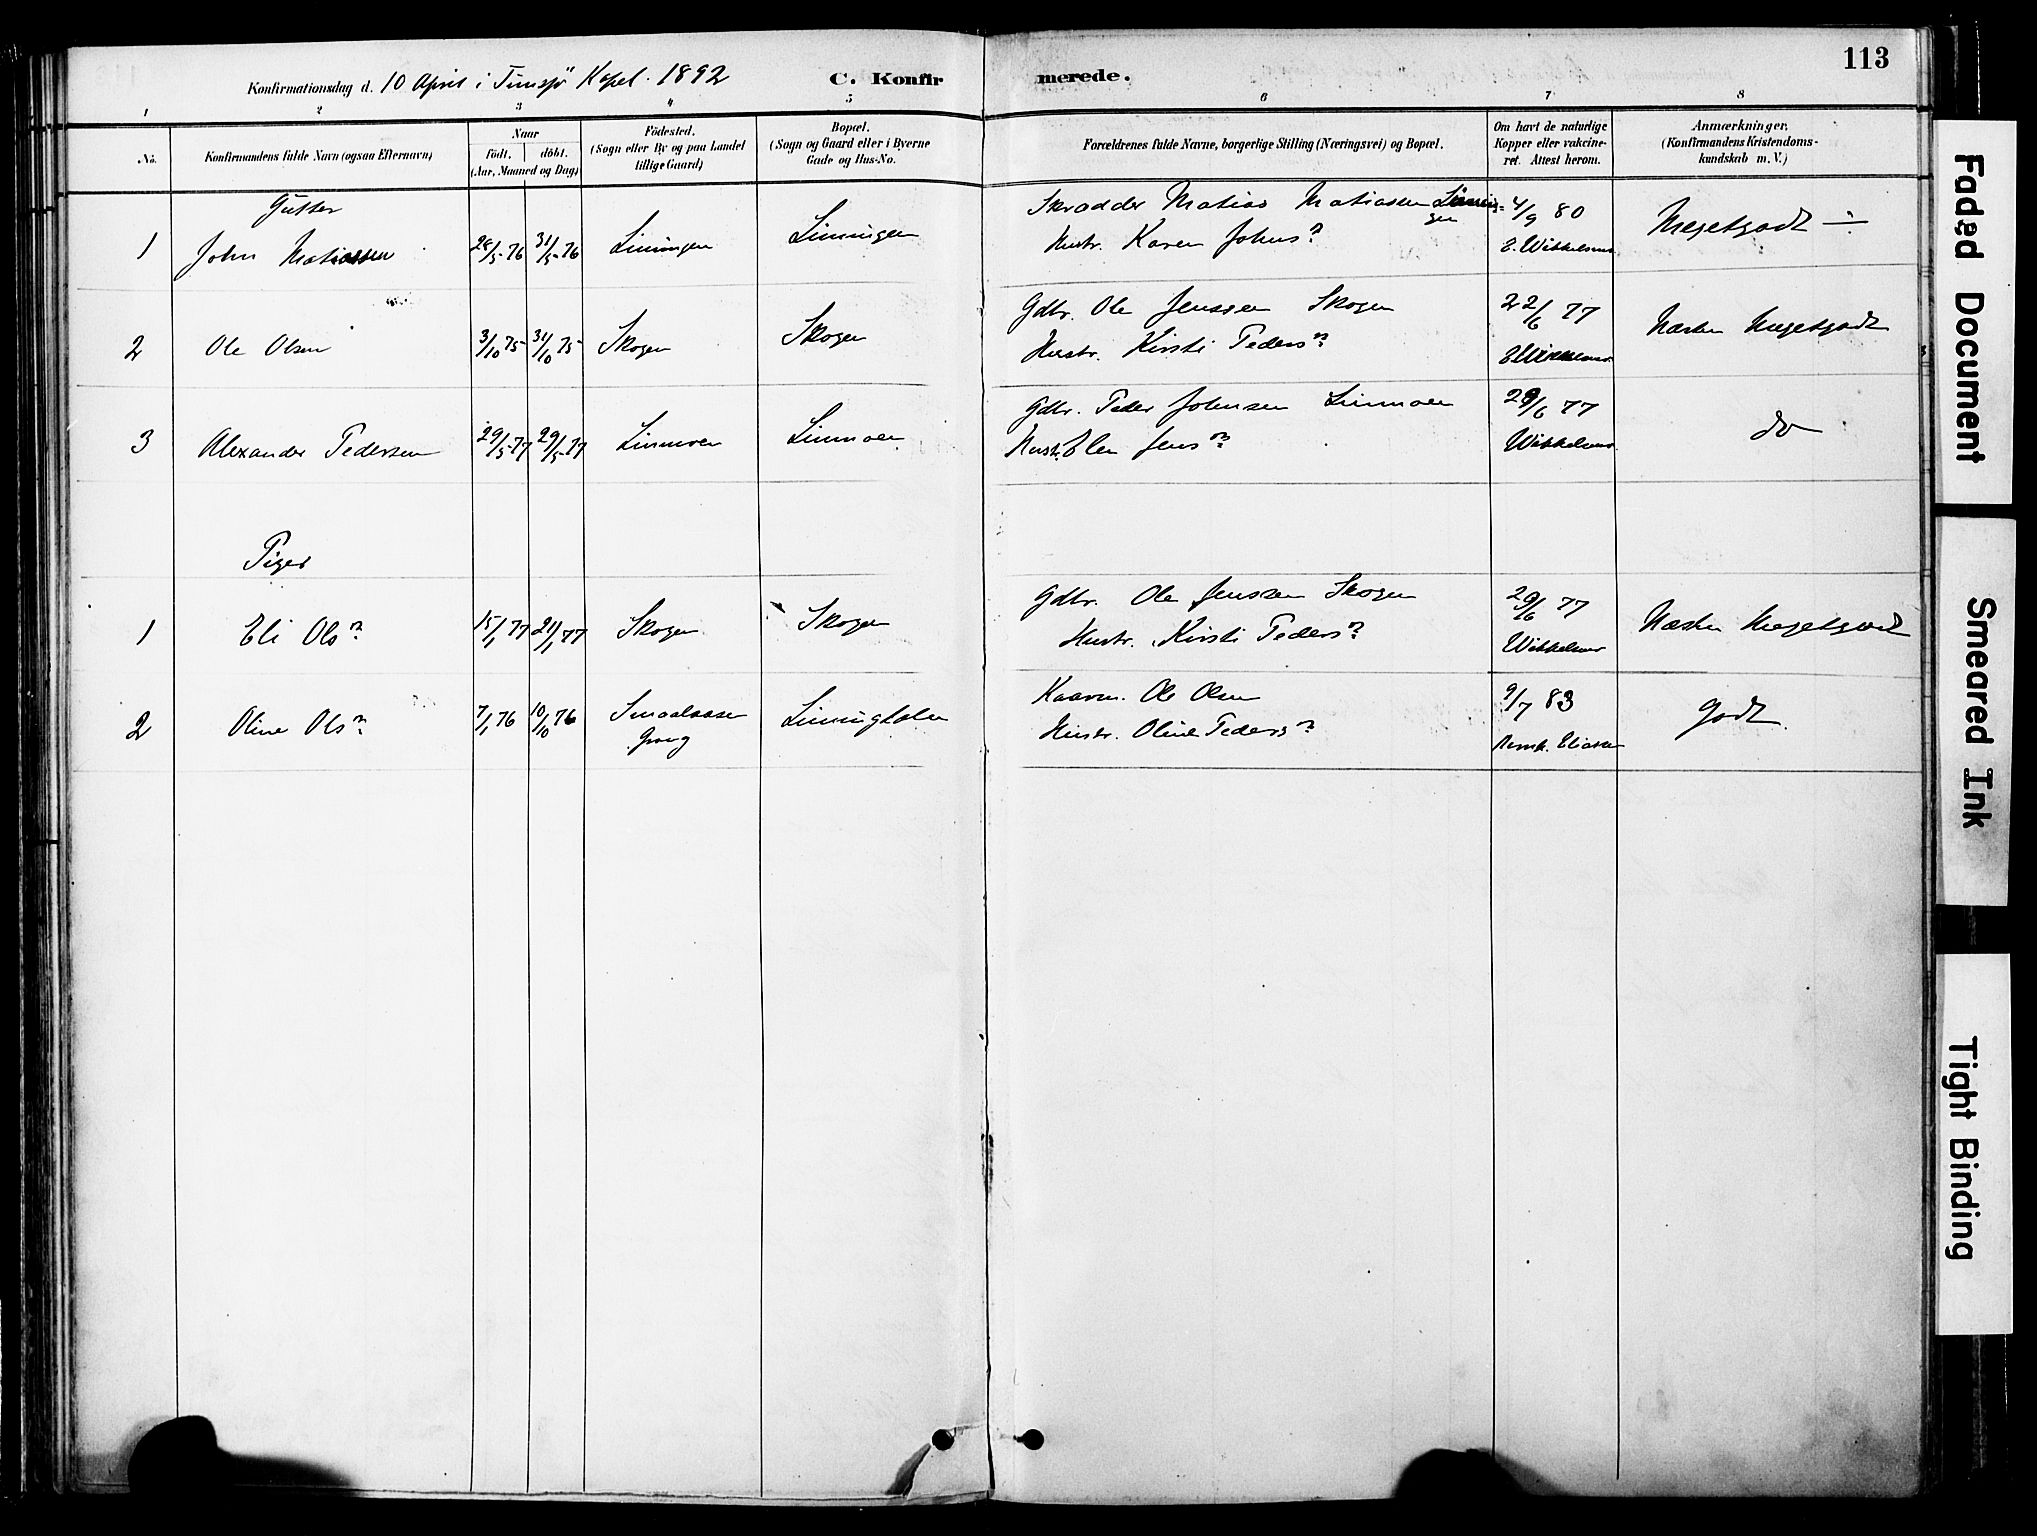 113
Konfirmationsdag d. 10 April i Tunsjö Kapel. 1892 C. Konfirmerede.
1 2 3 4 5 6 7 8
No.
Konfirmandens fulde Navn (ogsaa Efternavn)
Naar
födt. döbt.
(Aar, Maaned og Dag)
Födested.
(Sogn eller By og paa Landet
tillige Gaard)
Bopæl.
(Sogn og Gaard eller i Byerne
Gade og Hus-No.
Forældrenes fulde Navne, borgerlige Stilling (Næringsvei) og Bopæl.
Om havt de naturlige
Kopper eller vakcine-
ret. Attest herom.
Anmærkninger.
(Konfirmandens Kristendoms-
kundskab m. V.)
Gutter
1 John Matiassen 28/5-76 31/5-76 Limingen Limingen
Skrædder Matias Matiassen Limin=
gen
Hustr. Karen Johnsn
4/9 80
E. Wikkelmur
Megetgodt ÷
2 Ole Olsen 3/10 75 31/10 75 Skogen Skogen
Gdbr. Ole Jenssen Skogen
Hustr. Kirsti Pedersn
22/6 77
Næsten Megetgodt
3 Alexander Pedersen 29/5-77 29/5-77 Linmoen Linmoen
Gdbr. Peder Johnsen Linmoen
Hustr. Elen Jensn
29/6 77
Wikkelmur
do
Piger
1 Eli Olsn 15/1 77 21/1 77 Skogen Skogen
Gdbr. Ole Jenssen Skogen
Hustr. Kirsti Pedersn
29/6 77
Wikkelmur
Næsten Megetgodt
2 Oline Olsn 7/1 76 10/10 76 Smaalaasen
Grong
Ole Olsen
Hustr. Oline Pedersn
9/7 83
Eliasen
Godt.
Faded Document
Smeared Ink
Tight Binding